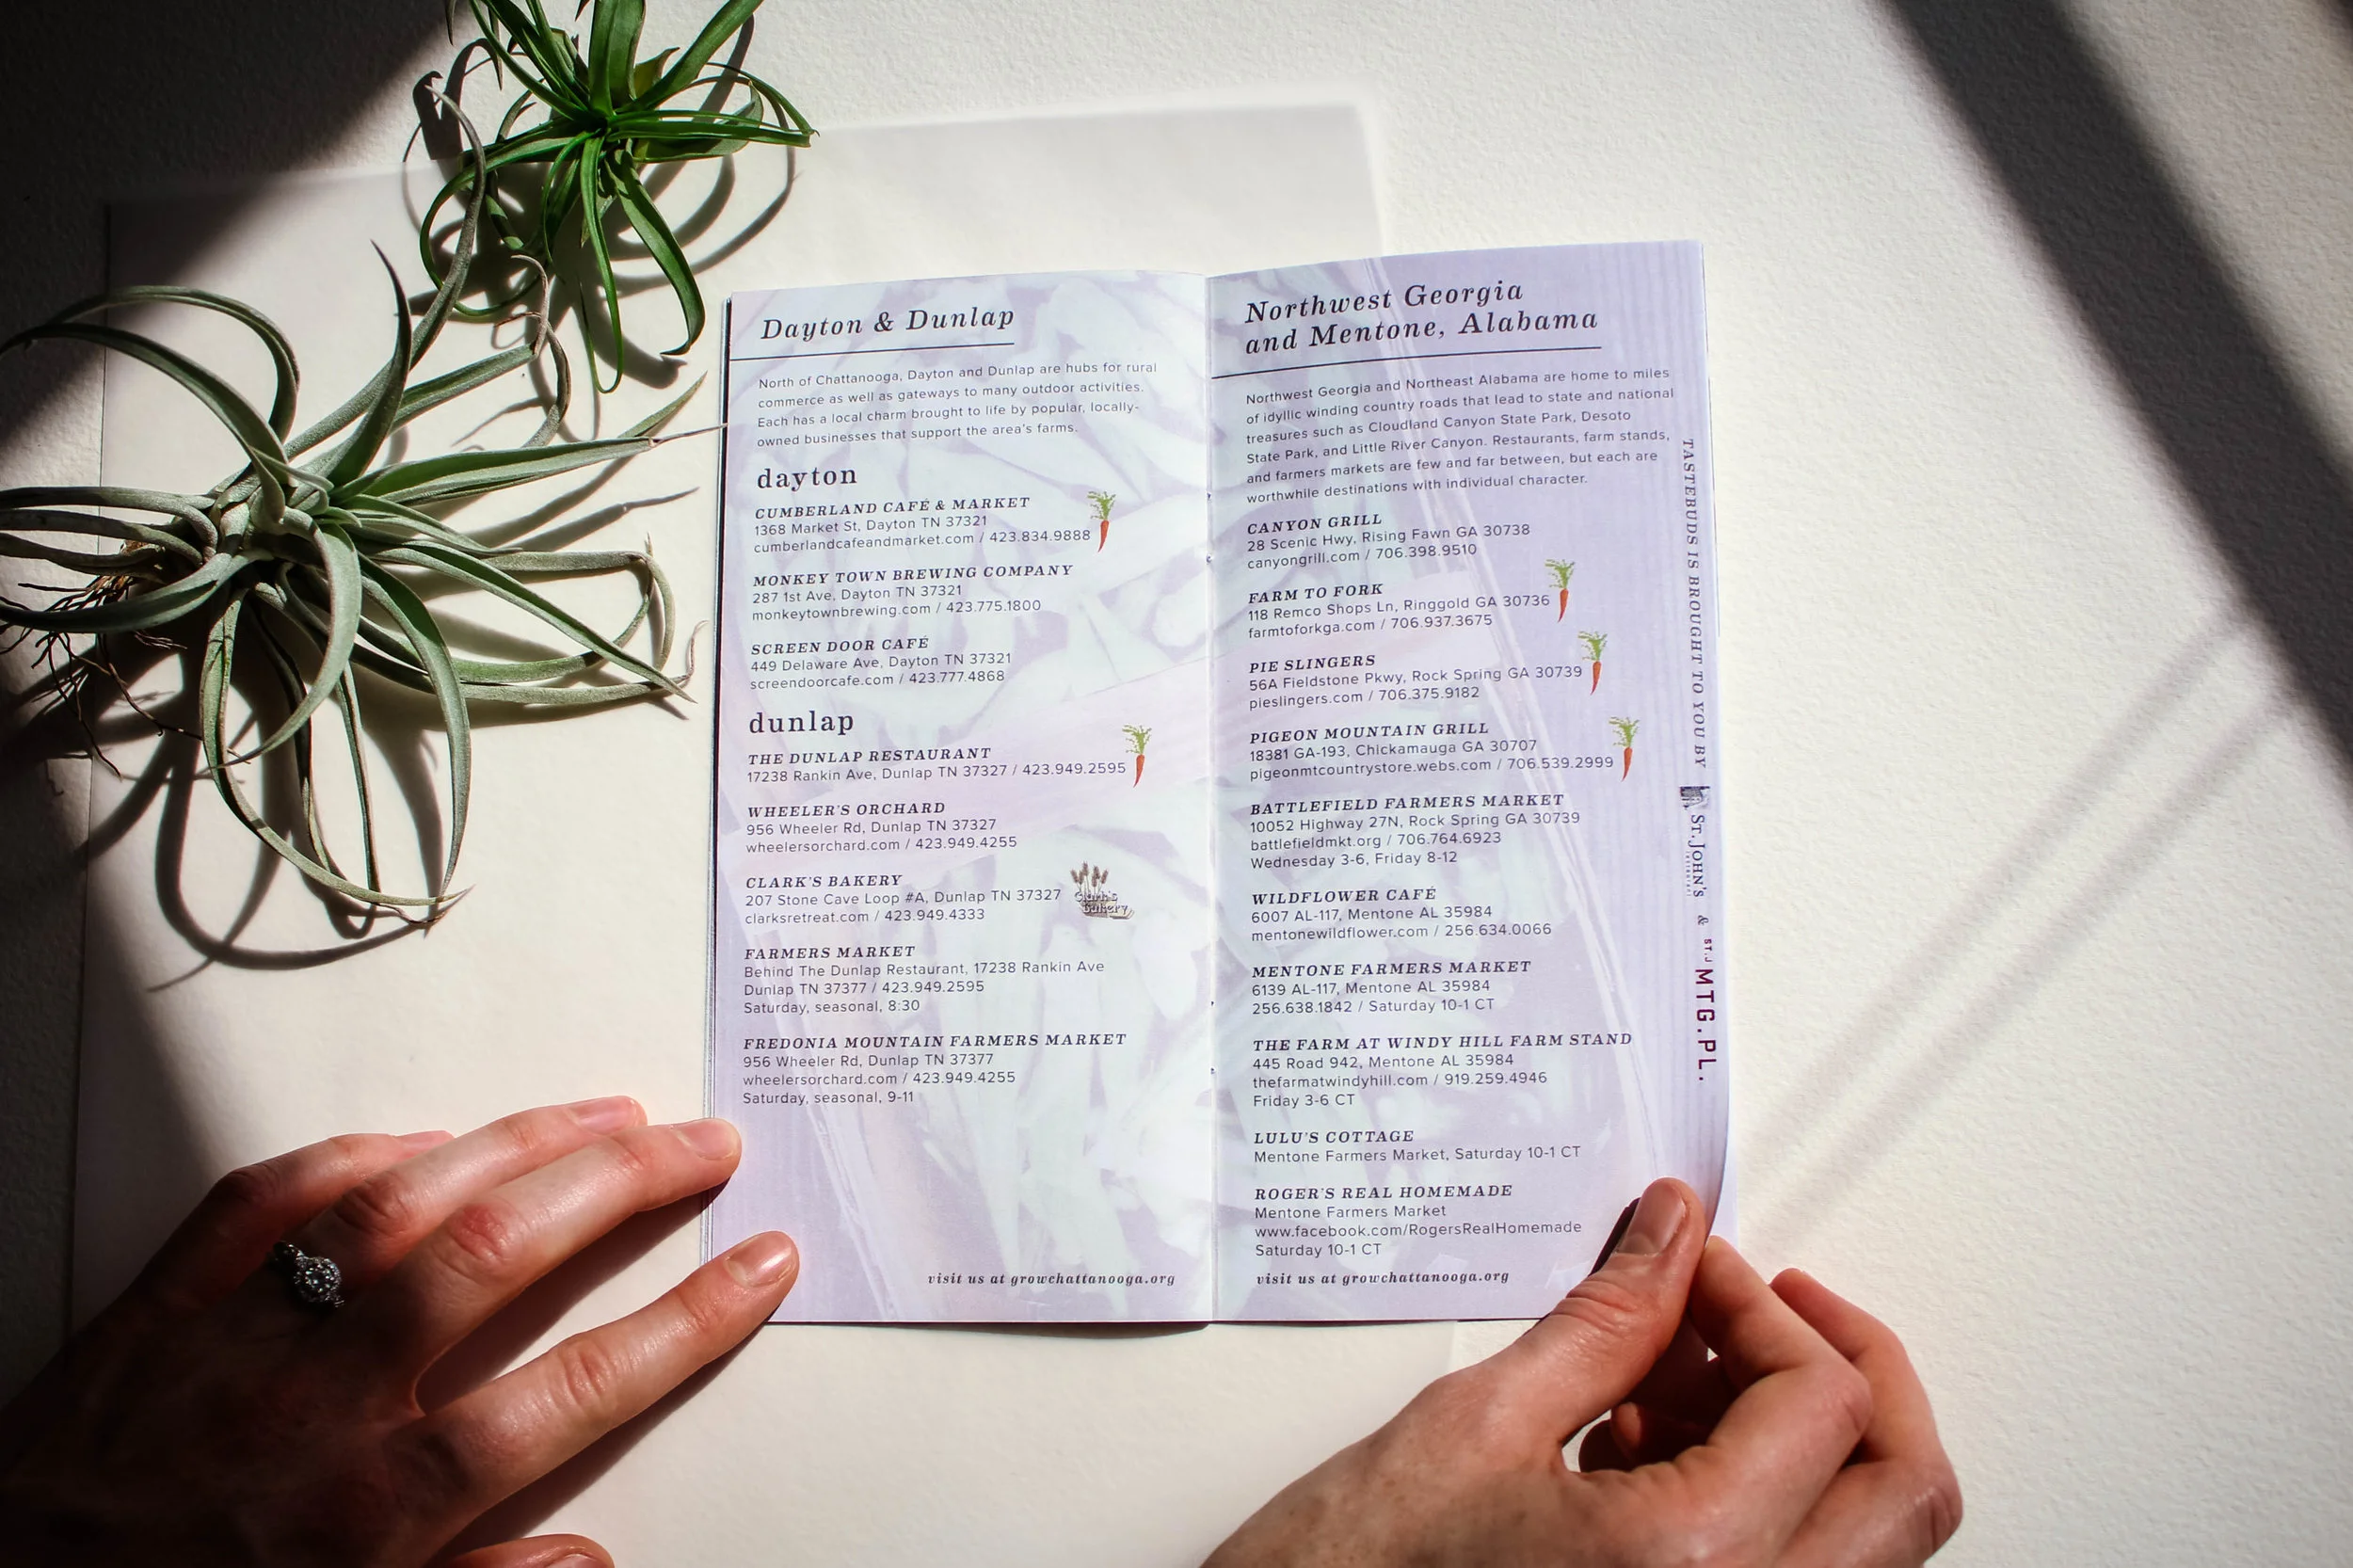 Dayton & Dunlap
North of Chattanooga, Dayton and Dunlap are hubs for rural
commerce as well as gateways to many outdoor activities.
Each has a local charm brought to life by popular, locally-
owned businesses that support the area's farms.
dayton
CUMBERLAND CAFÉ & MARKET
1368 Market St, Dayton TN 37321
cumberlandcafeandmarket.com / 423.834.9888
MONKEY TOWN BREWING COMPANY
287 1st Ave, Dayton TN 37321
monkeytownbrewing.com / 423.775.1800
SCREEN DOOR CAFÉ
449 Delaware Ave, Dayton TN 37321
screendoorcafe.com / 423.777.4868
dunlap
THE DUNLAP RESTAURANT
17238 Rankin Ave, Dunlap TN 37327 / 423.949.2595
WHEELER'S ORCHARD
956 Wheeler Rd, Dunlap TN 37327
wheelersorchard.com / 423.949.4255
CLARK'S BAKERY
207 Stone Cave Loop #A, Dunlap TN 37327
clarksretreat.com / 423.949.4333
Clark's
Bakery
FARMERS MARKET
Behind The Dunlap Restaurant, 17238 Rankin Ave
Dunlap TN 37377 / 423.949.2595
Saturday, seasonal, 8:30
FREDONIA MOUNTAIN FARMERS MARKET
956 Wheeler Rd, Dunlap TN 37377
wheelersorchard.com / 423.949.4255
Saturday, seasonal, 9-11
visit us at growchattanooga.org
Northwest Georgia
and Mentone, Alabama
Northwest Georgia and Northeast Alabama are home to miles
of idyllic winding country roads that lead to state and national
treasures such as Cloudland Canyon State Park, Desoto
State Park, and Little River Canyon. Restaurants, farm stands,
and farmers markets are few and far between, but each are
worthwhile destinations with individual character.
CANYON GRILL
28 Scenic Hwy, Rising Fawn GA 30738
canyongrill.com / 706.398.9510
FARM TO FORK
118 Remco Shops Ln, Ringgold GA 30736
farmtoforkga.com / 706.937.3675
PIE SLINGERS
56A Fieldstone Pkwy, Rock Spring GA 30739
pieslingers.com / 706.375.9182
PIGEON MOUNTAIN GRILL
18381 GA-193, Chickamauga GA 30707
pigeonmtcountrystore.webs.com / 706.539.2999
BATTLEFIELD FARMERS MARKET
10052 Highway 27N, Rock Spring GA 30739
battlefieldmkt.org / 706.764.6923
Wednesday 3-6, Friday 8-12
WILDFLOWER CAFÉ
6007 AL-117, Mentone AL 35984
mentonewildflower.com / 256.634.0066
MENTONE FARMERS MARKET
6139 AL-117, Mentone AL 35984
256.638.1842 / Saturday 10-1 CT
THE FARM AT WINDY HILL FARM STAND
445 Road 942, Mentone AL 35984
thefarmatwindyhill.com / 919.259.4946
Friday 3-6 CT
LULU'S COTTAGE
Mentone Farmers Market, Saturday 10-1 CT
ROGER'S REAL HOMEMADE
Mentone Farmers Market
www.facebook.com/RogersRealHomemade
Saturday 10-1 CT
visit us at growchattanooga.org
TASTEBUDS IS BROUGHT TO YOU BY
ST. JOHN'S
&
ST.J MTG.PL.